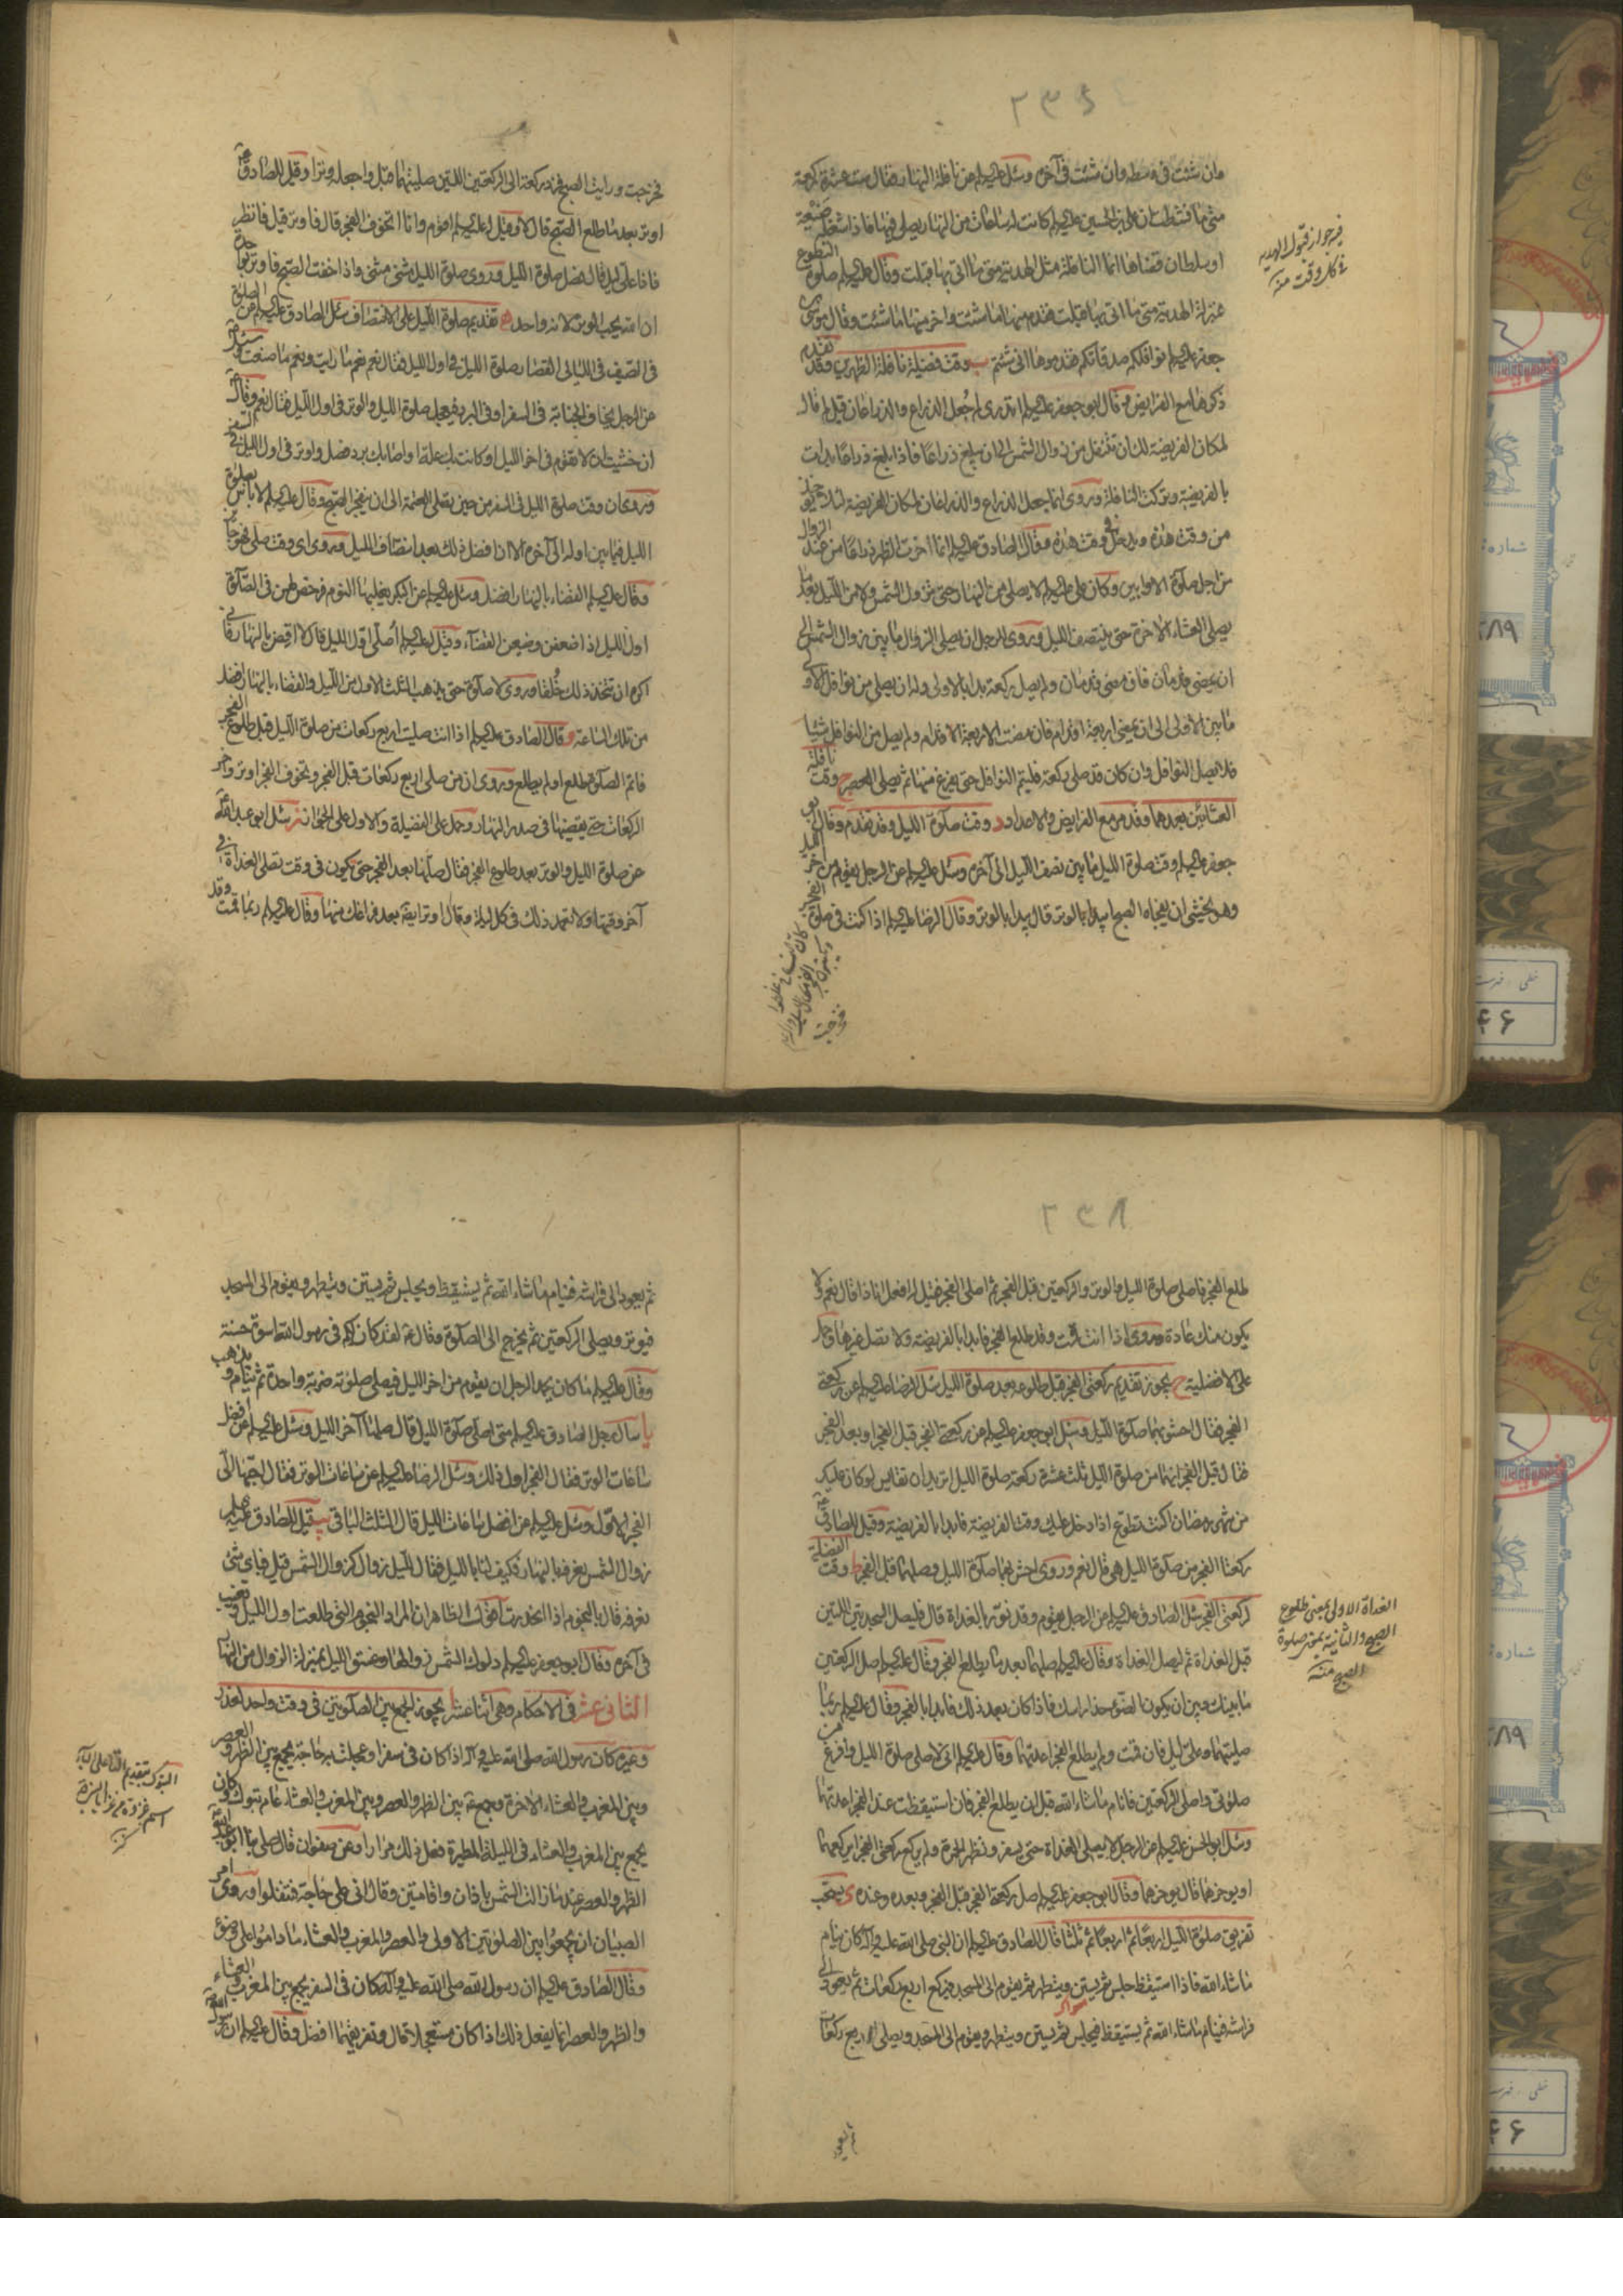 ٢٣٤
وان شئت فى وسطه وان شئت فى آخره وسئل عليه‌السلم عن نافلة النهار فقال ست عشرة ركعة
متى ما نشطت ان على بن الحسين عليه‌السلم كانت له ساعات من النهار يصلى فيها فاذا شغله ضيعة
او سلطان قضاها انما النافلة مثل الهدية متى ما اتى بها قبلت وقال عليه‌السلم صلوة التطوع
بمنزلة الهدية متى ما اتى بها قبلت فقدم منها ما شئت واخر منها ما شئت وقال موسى بن
جعفر عليه‌السلم نوافلكم صدقاتكم فقدموها انى شئتم ب وقت فضيلة نافلة الظهرين وقد تقدم
ذكرها مع الفرايض وقال ابو جعفر عليه‌السلم اتدرى لم جعل الذراع والذراعان قيل لم قال
لمكان الفريضة لك ان تتنفل من زوال الشمس الى ان يبلغ ذراعا فاذا بلغ ذراعا بدات
بالفريضة وتركت النافلة وروى انما جعل الذراع والذراعان لمكان الفريضة لئلا يؤخذ
من وقت هذه ويدخل فى وقت هذه وقال الصادق عليه‌السلم انما اخرت الظهر ذراعا من عند الزوال
من اجل صلوة الاوابين وكان على عليه‌السلم لا يصلى من النهار حتى تزول الشمس ولا من الليل بعد ما
يصلى العشاء الاخرة حتى ينتصف الليل وروى للرجل ان يصلى الزوال ما بين زوال الشمس الى
ان يمضى قدمان فان مضى قدمان ولم يصل ركعة بدا بالاولى وله ان يصلى من نوافل الاولى
ما بين الاولى الى ان يمضى اربعة اقدام فان مضت الاربعة الاقدام ولم يصل من النوافل شيئا
فلا يصل النوافل وان كان قد صلى ركعة فليتم النوافل حتى يفرغ منها ثم يصلى العصر ج وقت نافلة
العشائين بعدهما وقد مر مع الفرايض والاعداد د وقت صلوة الليل وقد تقدم وقال ابو
جعفر عليه‌السلم وقت صلوة الليل ما بين نصف الليل الى آخره وسئل عليه‌السلم عن الرجل يقوم من آخر الليل
وهو يخشى ان يفجاه الصبح ايبدا بالوتر قال يبدا بالوتر وقال الرضا عليه‌السلم اذا كنت فى صلوة الفجر
فخرجت
فيه جواز قبول الهدية
فى كل وقت منه
فخرجت ورايت الصبح فزد ركعة الى الركعتين اللتين صليتهما قبل واجعله وترا وقيل للصادق ع
اوتر بعد ما طلع الصبح قال لا وقيل له عليه‌السلم اقوم وانا اتخوف الفجر قال فاوتر قيل فانظر
فاذا على ليل قال فصل صلوة الليل وروى صلوة الليل مثنى مثنى واذا خفت الصبح فاوتر بواحدة
ان الله يحب الوتر لانه واحد ه تقديم صلوة الليل على الانتصاف سئل الصادق عليه‌السلم عن الصلوة
فى الصيف فى الليالى القصار صلوة الليل فى اول الليل فقال نعم نعم ما رايت ونعم ما صنعت وسئل ع
عن الرجل يخاف الجنابة فى السفر او فى البرد فيعجل صلوة الليل والوتر فى اول الليل فقال نعم وقال ع
ان خشيت ان لا تقوم فى اخر الليل او كانت بك علة او اصابك برد فصل واوتر فى اول الليل فى السفر
وروى ان وقت صلوة الليل فى السفر من حين تصلى العتمة الى ان ينفجر الصبح وقال عليه‌السلم لا باس بصلوة
الليل فيما بين اوله الى آخره الا ان افضل ذلك بعد انتصاف الليل وروى اى وقت صلى فهو جائز
وقال عليه‌السلم القضاء بالنهار افضل وسئل عليه‌السلم عن البكر يغلبها النوم فرخص لهن فى الصلوة
اول الليل اذا ضعفن وضيعن القضاء وقيل له عليه‌السلم اصلى اول الليل قال لا اقض بالنهار فانى
اكره ان تتخذ ذلك خلقا وروى لا صلوة حتى يذهب الثلث الاول من الليل والقضاء بالنهار افضل
من تلك الساعة و قال الصادق عليه‌السلم اذا انت صليت اربع ركعات من صلوة الليل قبل طلوع الفجر
فاتم الصلوة طلع اولم يطلع وروى ان من صلى اربع ركعات قبل الفجر وتخوف الفجر اوتر واخر
الركعات حتى يقضيها فى صدر النهار وحمل على الفضيلة والاول على الجواز ز سئل ابو عبد الله ع
عن صلوة الليل والوتر بعد طلوع الفجر فقال صلها بعد الفجر حتى تكون فى وقت تصلى الغداة فى
آخر وقتها ولا تعمد ذلك فى كل ليلة وقال اوتر ايضا بعد فراغك منها وقال عليه‌السلم ربما قمت وقد
٢٣٨
طلع الفجر فاصلى صلوة الليل والوتر والركعتين قبل الفجر ثم اصلى الفجر فقيل له افعل انا ذا قال نعم ولا
يكون منك عادة وروى اذا انت قمت وقد طلع الفجر فابدا بالفريضة ولا تصل غيرها وحمل
على الافضلية ح يجوز تقديم ركعتى الفجر قبل طلوعه وبعد صلوة الليل سئل الرضا عليه‌السلم عن ركعتى
الفجر فقال احشو بهما صلوة الليل وسئل ابو جعفر عليه‌السلم عن ركعتى الفجر قبل الفجر او بعد الفجر
فقال قبل الفجر انهما من صلوة الليل ثلث عشرة ركعة صلوة الليل اتريد ان تقايس لو كان عليك
من شهر رمضان اكنت تطوع اذا دخل عليك وقت الفريضة فابدا بالفريضة وقيل للصادق ع
ركعتا الفجر من صلوة الليل هى قال نعم وروى احش بهما صلوة الليل وصلهما قبل الفجر ط وقت الفضيلة
لركعتى الفجر سئل الصادق عليه‌السلم عن الرجل يقوم وقد نور بالغداة قال فليصل السجدتين اللتين
قبل الغداة ثم ليصل الغداة وقال عليه‌السلم صلهما بعد ما يطلع الفجر وقال عليه‌السلم صل الركعتين
ما بينك وبين ان يكون الضوء حذا راسك فاذا كان بعد ذلك فابدا بالفجر وقال عليه‌السلم ربما
صليتهما وعلى ليل فان قمت ولم يطلع الفجر اعدتهما وقال عليه‌السلم انى لاصلى صلوة الليل وافرغ من
صلوتى واصلى الركعتين فانام ما شاء الله قبل ان يطلع الفجر فان استيقظت عند الفجر اعدتهما
وسئل ابو الحسن عليه‌السلم عن الرجل لا يصلى الغداة حتى يسفر وتظهر الحمرة ولم يركع ركعتى الفجر ايركعهما
او يوخرهما قال يوخرهما وقال ابو جعفر عليه‌السلم صل ركعتى الفجر قبل الفجر وبعده وعنده ى يستحب
تفريق صلوة الليل اربعا ثم اربعا ثم ثلثا قال الصادق عليه‌السلم ان النبى صلى الله عليه وآله كان ينام
ما شاء الله فاذا استيقظ جلس ثم يستن ويتطهر ثم يقوم الى المسجد فيركع اربع ركعات ثم يعود الى
فراشه فينام ما شاء الله ثم يستيقظ فيجلس ثم يستن ويتطهر ويقوم الى المسجد ويصلى الاربع ركعات
ثم يعود
الغداة الاولى بمعنى طلوع
الصبح والثانية بمعنى صلوة
الصبح منه
ثم يعود الى فراشه فينام ما شاء الله ثم يستيقظ ويجلس ثم يستن ويتطهر ويقوم الى المسجد
فيوتر ويصلى الركعتين ثم يخرج الى الصلوة وقال ع لقد كان لكم فى رسول الله اسوة حسنة
وقال عليه‌السلم ما كان يحمد الرجل ان يقوم من اخر الليل فيصلى صلوته ضربة واحدة ثم ينام ويذهب
يا سال رجل الصادق عليه‌السلم متى اصلى صلوة الليل قال صلها آخر الليل وسئل عليه‌السلم عن افضل
ساعات الوتر فقال الفجر اول ذلك وسئل الرضا عليه‌السلم عن ساعات الوتر فقال احبها الى
الفجر الاول وسئل عليه‌السلم عن افضل ساعات الليل قال الثلث الباقى يب قيل للصادق عليه‌السلم
زوال الشمس نعرفه بالنهار فكيف لنا بالليل فقال لليل زوال كزوال الشمس قيل فباى شئ
نعرفه قال بالنجوم اذا انحدرت اقول الظاهر ان المراد النجوم التى طلعت اول الليل وتغيب
فى آخره وقال ابو جعفر عليه‌السلم دلوك الشمس زوالها وغسق الليل بمنزلة الزوال من النهار
الثانى عشر فى الاحكام وهى اثنا عشر ا يجوز الجمع بين الصلوتين فى وقت واحد لعذر
وغيره كان رسول الله صلى الله عليه وآله اذا كان فى سفر او عجلت به حاجة يجمع بين الظهر والعصر
وبين المغرب والعشاء الاخرة وجمع ع بين الظهر والعصر وبين المغرب والعشاء عام تبوك وكان
يجمع بين المغرب والعشاء فى الليلة المطيرة فعل ذلك مرارا وعن صفوان قال صلى بنا ابو عبد الله ع
الظهر والعصر عند ما زالت الشمس باذان واقامتين وقال انى على حاجة فتنفلوا وروى امر
الصبيان ان يجمعوا بين الصلوتين الاولى والعصر والمغرب والعشاء ما داموا على وضوء
وقال الصادق عليه‌السلم ان رسول الله صلى الله عليه وآله كان فى السفر يجمع بين المغرب والعشاء
والظهر والعصر انما يفعل ذلك اذا كان مستعجلا قال وتفريقهما افضل وقال عليه‌السلم ان رسول الله ص